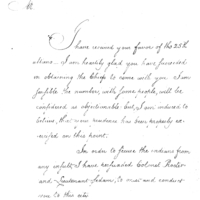 I have received your favor of the 25th
I am heartily glad you have succeeded
in obtaining the Chiefs to come with you. I am
sensible the number, with some people, will be
considered as objectionable but, I am induced to
believe, that your conduct has been properly
on this point.
In order to secure the Indians from
any insult I have Colonel
and Lieutenant to meet and conduct
you to this city